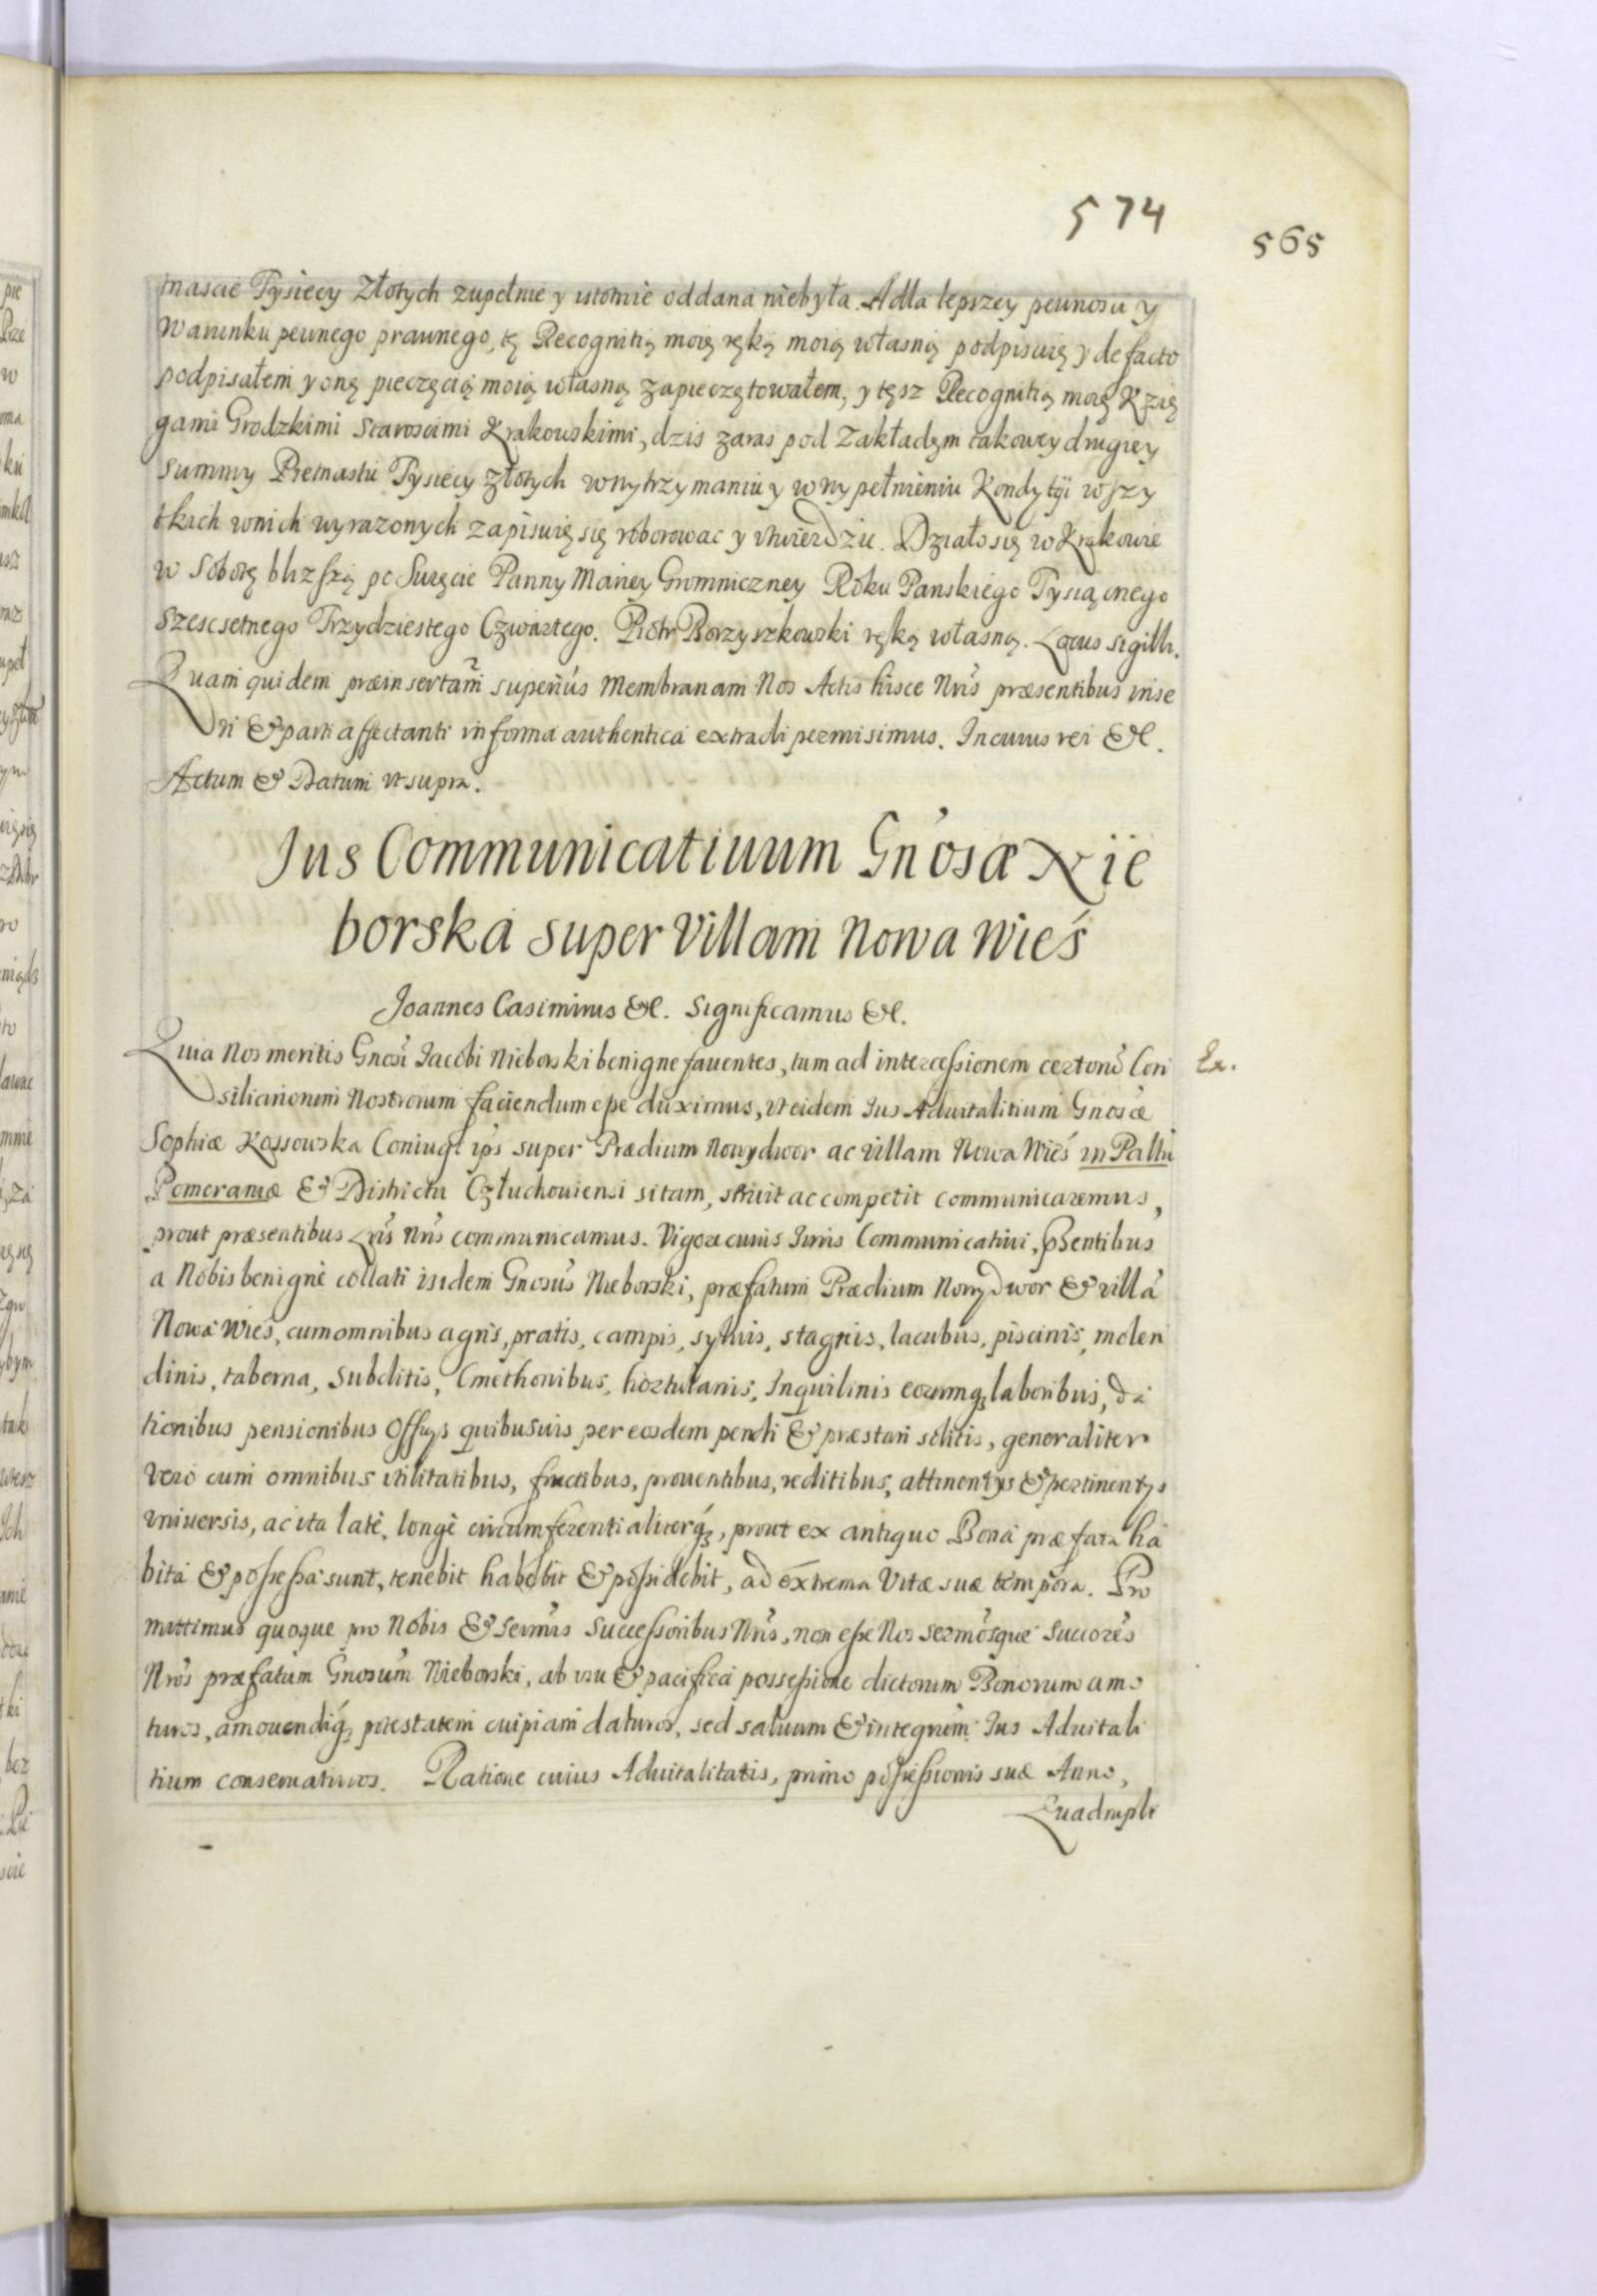 574
565
tnascie Tysiecy Złotych zupełnie y istotnie oddana niebyła. Adla lepszey pewnosci y
Warunku pewnego prawnego, tę Recognitią moię ręką moią własną podpisuię y de facto
podpisałem y onę pieczęcią moią własną zapieczętowałem, y tęsz Recognitią moię Kzię
gami Grodzkimi Staroscimi Krakowskimi, dzis zaras pod Zakładem takowey drugiey
summy Pietnastu Tysiecy złotych w wytrzymaniu y w wypełnieniu Kondytÿi wszy
tkich w nich wyrazonych zapisuię się roborowac y utwierdzic. Działo się w Krakowie
w Sobotę blizszą po Swięcie Panny Mariey Gromniczney Roku Panskiego Tysiącnego
Szescsetnego Trzydziestego Czwartego. Piotr Borzyszkowski ręką własną. Locus sigilli.
Quam quidem præinsertam superius Membranam Nos Actis hisce Nris præsentibus inse
ri & parti affectanti in forma authentica extradi permisimus. In cuius rei &c.
Actum & Datum ut supra.
Jus Communicatiuum Gnosæ Nie
borska super Villam Nowa Wieś
Joannes Casimirus &c. Significamus &c.
Quia Nos meritis Gnosi Jacobi Nieborski benigne fauentes, tum ad intercessionem certorū Con
siliariorum Nostrorum faciendum esse duximus, vt eidem Jus Aduitalitium Gnosæ
Ex.
Sophiæ Kossowska Coniugi ips super Prædium Nowydwor ac villam Nowa Wieś in Pallu
Pomeraniæ & Districtu Człuchouiensi sitam, seruit ac competit communicaremus,
prout præsentibus Lris Nris communicamus. Vigore cuius Juris Communicatiui, psentibus
a Nobis benignè collati iisdem Gnosus Nieborski, præfatum Prædium Nowydwor & villā
Nowa Wieś, cum omnibus agris, pratis, campis, syluis, stagnis, lacubus, piscinis, molen
dinis, taberna, subditis, Cmethonibus, hortulanis, Inquilinis eorumq; laboribus, da
tionibus pensionibus Offijs quibusuis per eosdem pendi & præstari solitis, generaliter
vero cum omnibus vtilitatibus, fructibus, prouentibus, reditibus, attinentijs & pertinentijs
vniuersis, ac ita latè, longè circumferentialiterq;, prout ex antiquo Bona præfata ha
bita & possessa sunt, tenebit habebit & possidebit, ad extrema Vitæ suæ tempora. Pro
mittimus quoque pro Nobis & sermis Successoribus Nris, non esse Nos sermosque Succores
Nros præfatum Gnosum Nieborski, ab vsu & pacifica possessione dictorum Bonorum amo
turos, amouendiq; potestatem cuipiam daturos, sed saluum & integrum Jus Aduitali
tium conseruaturos. Ratione cuius Aduitalitatis, primo possessionis suæ Anno,
Quadrupli